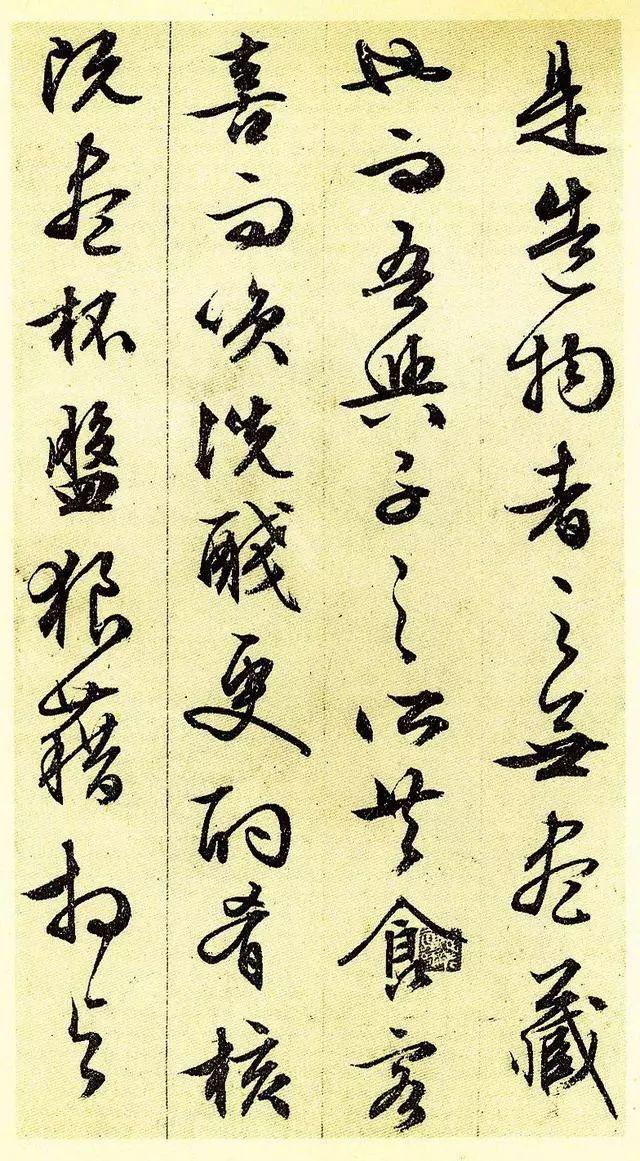 是造物者之無盡藏
也而吾與子之所共食客
喜而笑洗醆更酌肴核
既盡杯盤狼藉相與